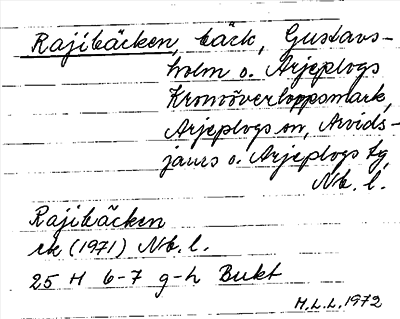 Rajibäcken, bäck, Gustavs-
holm o. Arjeplogs
Kronoöverloppsmark,
Arjeplogs sn, Arvids-
jaurs o. Arjeplogs tg
Nb. l.
Rajibäcken
ek (1971) Nb. l.
25 H 6-7 g-h Bukt
H.L.L. 1972